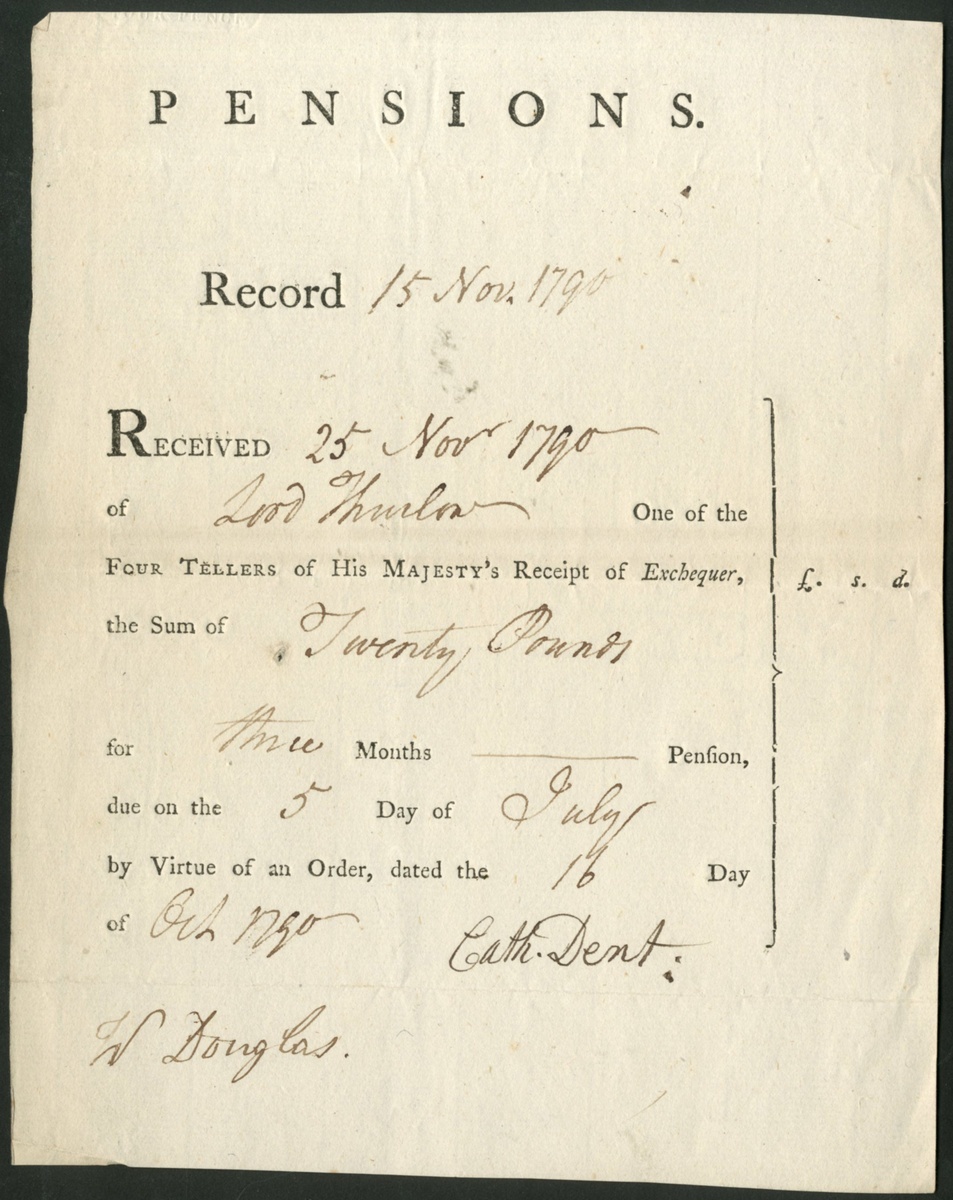 PENSIONS.
Record 15 Nov. 1790
RECEIVED 25 Novr 1790
of Lord Thurlow One of the
FOUR TELLERS of His MAJESTY's Receipt of Exchequer, £. s. d.
the Sum of Twenty Pounds
for three Months Penſion,
due on the 5 Day of July
by Virtue of an Order, dated the 16 Day
of Oct 1790
Cath. Dent.
W Douglas.